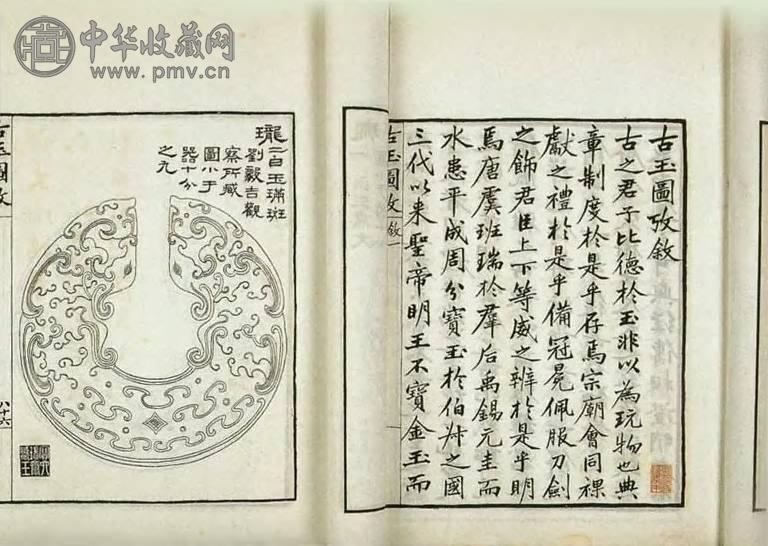 中华收藏网
www.pmv.cn
古玉圖攷敘
古之君子比德於玉非以為玩物也典
章制度於是乎存焉宗廟會同祼
獻之禮於是乎備冠冕佩服刀劍
之飾君臣上下等威之辨於是乎明
焉唐虞班瑞於羣后禹錫元圭而
水患平成周分寶玉於伯叔之國
三代以来聖帝明王不寶金玉而
古玉圖攷 敘 一
瓏二白玉璊斑
劉毅吉觀
察所藏
圖小于
器十分
之九
古玉圖攷
八十六